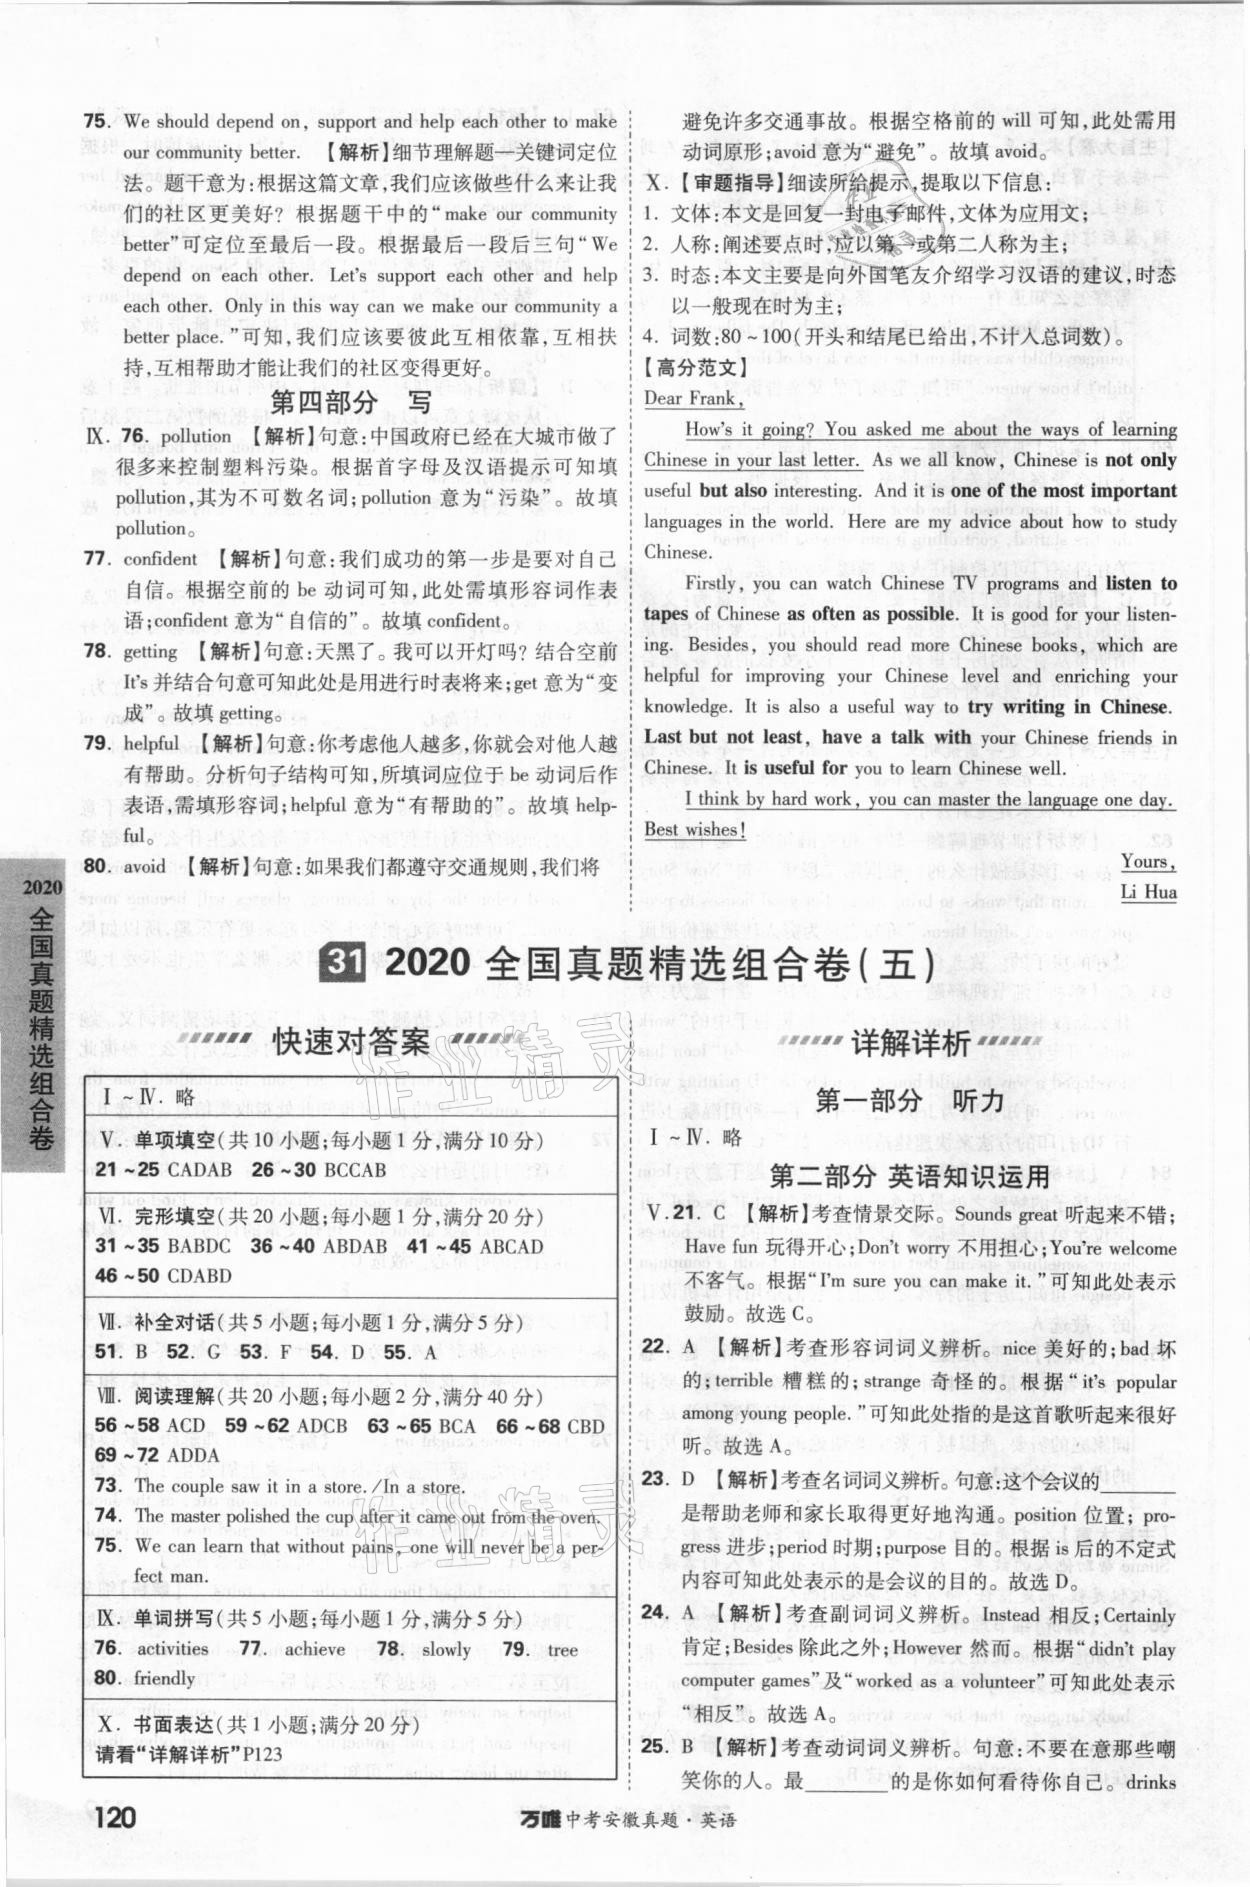 75. We should depend on, support and help each other to make
our community better. 【解析】细节理解题—关键词定位
法。题干意为:根据这篇文章,我们应该做些什么来让我
们的社区更美好? 根据题干中的“make our community
better”可定位至最后一段。根据最后三句“We
depend on each other. Let's support each other and help
each other. Only in this way can we make our community a
better place.”可知,我们应该要彼此互相依靠,互相扶
持,互相帮助才能让我们的社区变得更好。
第四部分 写
Ⅸ. 76. pollution 【解析】句意:中国政府已经在大城市做了
很多来控制塑料污染。根据首字母及汉语提示可知填
pollution,其为不可数名词;pollution 意为“污染”。故填
pollution。
77. confident 【解析】句意:我们成功的第一步是要对自己
自信。根据空前的 be 动词可知,此处需填形容词作表
语;confident 意为“自信的”。故填 confident。
78. getting 【解析】句意:天黑了。我可以开灯吗? 结合空前
It's 并结合句意可知此处是用进行时表将来;get 意为“变
成”。故填 getting。
79. helpful 【解析】句意:你考虑他人越多,你就会对他人越
有帮助。分析句子结构可知,所填词应位于 be 动词后作
表语,需填形容词;helpful 意为“有帮助的”。故填 help-
ful。
80. avoid 【解析】句意:如果我们都遵守交通规则,我们将
避免许多交通事故。根据空格前的 will 可知,此处需用
动词原形;avoid 意为“避免”。故填 avoid。
Ⅹ. 【审题指导】细读所给提示,提取以下信息:
1. 文体:本文是回复一封电子邮件,文体为应用文;
2. 人称:阐述要点时,应以第一或第二人称为主;
3. 时态:本文主要是向外国笔友介绍学习汉语的建议,时态
以一般现在时为主;
4. 词数:80~100(开头和结尾已给出,不计入总词数)。
【高分范文】
Dear Frank,
How's it going? You asked me about the ways of learning
Chinese in your last letter. As we all know, Chinese is not only
useful but also interesting. And it is one of the most important
languages in the world. Here are my advice about how to study
Chinese.
Firstly, you can watch Chinese TV programs and listen to
tapes of Chinese as often as possible. It is good for your listen-
ing. Besides, you should read more Chinese books, which are
helpful for improving your Chinese level and enriching your
knowledge. It is also a useful way to try writing in Chinese.
Last but not least, have a talk with your Chinese friends in
Chinese. It is useful for you to learn Chinese well.
I think by hard work, you can master the language one day.
Best wishes!
Yours,
Li Hua
2020 全国真题精选组合卷
31 2020 全国真题精选组合卷(五)
快速对答案
Ⅰ~Ⅳ. 略
Ⅴ. 单项填空(共 10 小题;每小题 1 分,满分 10 分)
21~25 CADAB 26~30 BCCAB
Ⅵ. 完形填空(共 20 小题;每小题 1 分,满分 20 分)
31~35 BABDC 36~40 ABDAB 41~45 ABCAD
46~50 CDABD
Ⅶ. 补全对话(共 5 小题;每小题 1 分,满分 5 分)
51. B 52. G 53. F 54. D 55. A
Ⅷ. 阅读理解(共 20 小题;每小题 2 分,满分 40 分)
56~58 ACD 59~62 ADCB 63~65 BCA 66~68 CBD
69~72 ADDA
73. The couple saw it in a store. /In a store.
74. The master polished the cup after it came out from the oven.
75. We can learn that without pains, one will never be a per-
fect man.
Ⅸ. 单词拼写(共 5 小题;每小题 1 分,满分 5 分)
76. activities 77. achieve 78. slowly 79. tree
80. friendly
Ⅹ. 书面表达(共 1 小题;满分 20 分)
请看“详解详析”P123
详解详析
第一部分 听力
Ⅰ~Ⅳ. 略
第二部分 英语知识运用
Ⅴ. 21. C 【解析】考查情景交际。Sounds great 听起来不错;
Have fun 玩得开心;Don't worry 不用担心;You're welcome
不客气。根据“I'm sure you can make it.”可知此处表示
鼓励。故选 C。
22. A 【解析】考查形容词词义辨析。nice 美好的;bad 坏
的;terrible 糟糕的;strange 奇怪的。根据“it's popular
among young people.”可知此处指的是这首歌听起来很好
听。故选 A。
23. D 【解析】考查名词词义辨析。句意:这个会议的________
是帮助老师和家长取得更好地沟通。position 位置; pro-
gress 进步;period 时期;purpose 目的。根据 is 后的不定式
内容可知此处表示的是会议的目的。故选 D。
24. A 【解析】考查副词词义辨析。Instead 相反;Certainly
肯定;Besides 除此之外;However 然而。根据“didn't play
computer games”及“worked as a volunteer”可知此处表示
“相反”。故选 A。
25. B 【解析】考查动词词义辨析。句意:不要在意那些嘲
笑你的人。最________的是你如何看待你自己。drinks
120
万唯中考安徽真题·英语
作业精灵
作业精灵